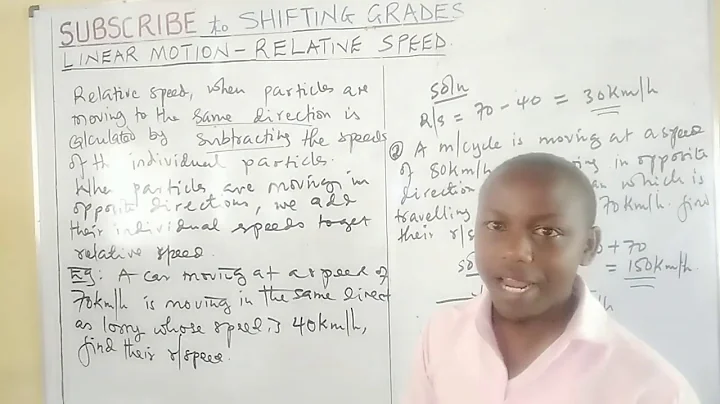 SUBSCRIBE to SHIFTING GRADES
LINEAR MOTION - RELATIVE SPEED.
Relative speed, when particles are
moving to the same direction is
calculated by subtracting the speeds
of the individual particles.
When particles are moving in
opposite directions, we add
their individual speeds to get
relative speed.
Eg: A car moving at a speed of
70km/h is moving in the same direct
as lorry whose speed is 40km/h,
find their r/speed.
Soln
R/s = 70 - 40 = 30km/h
② A m/cycle is moving at a speed
of 80km/h in opposite
direction which is
travelling 70km/h. find
their r/s
+ 70
= 150km/h.